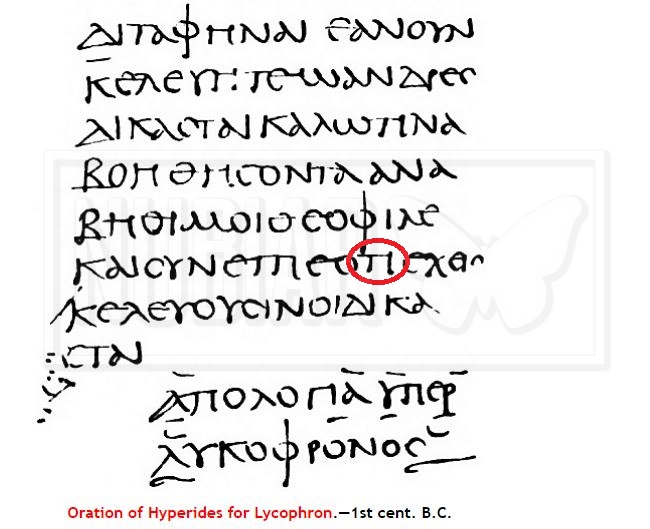 ΑΙΤΑΦΗΝΑΙ ΕΑΝΟΥΝ
ΚΕΛΕΥΗΤΕΩΑΝΔΡΕC
ΔΙΚΑCΤΑΙΚΑΛΩΤΙΝΑ
ΒΟΗΘΗCΟΝΤΑΑΝΑ
ΒΗΘΙΜΟΙΘΕΟΦΙΛΕ
ΚΑΙCΥΝΕΙΠΕΟΤΙΕΧΕΙC
ΚΕΛΕΥΟΥCΙΝΟΙΔΙΚΑ
CΤΑΙ
ΑΠΟΛΟΓΙΑ ΥΠΕΡ
ΛΥΚΟΦΡΟΝΟC
Oration of Hyperides for Lycophron.—1st cent. B.C.